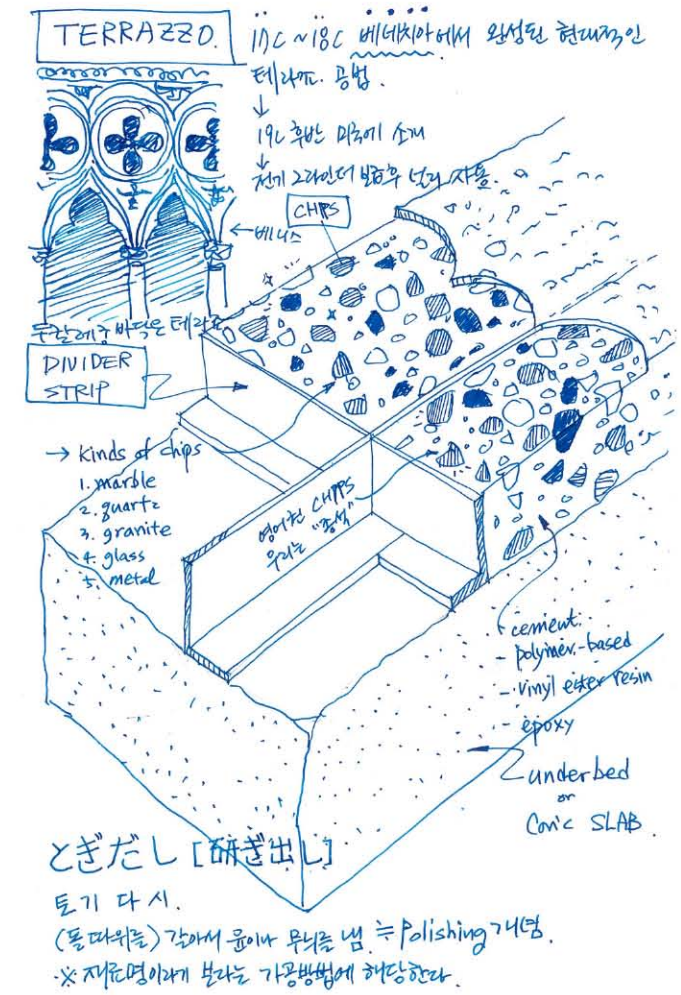 TERRAZZO.
17C ~18C 베네치아에서 완성된 현대적인
테라쪼. 공법.
↓
19C 후반 미국에 소개
↓
전기 그라인더 발명후 널리 사용.
CHIPS
←베니스
두칼레궁 바닥은 테라쪼
DIVIDER
STRIP
→ kinds of chips
1. marble
2. quartz
3. granite
4. glass
5. metal
영어권 CHIPS
우리는 "종석"
- cement.
- polymer-based
- vinyl ester resin
- epoxy
underbed
or
Con'c SLAB.
とぎだし [研ぎ出し]
토기 다 시.
(돌 따위를) 갈아서 윤이나 무늬를 냄. ≒ Polishing 개념.
※ 재료명이라기 보다는 가공방법에 해당한다.